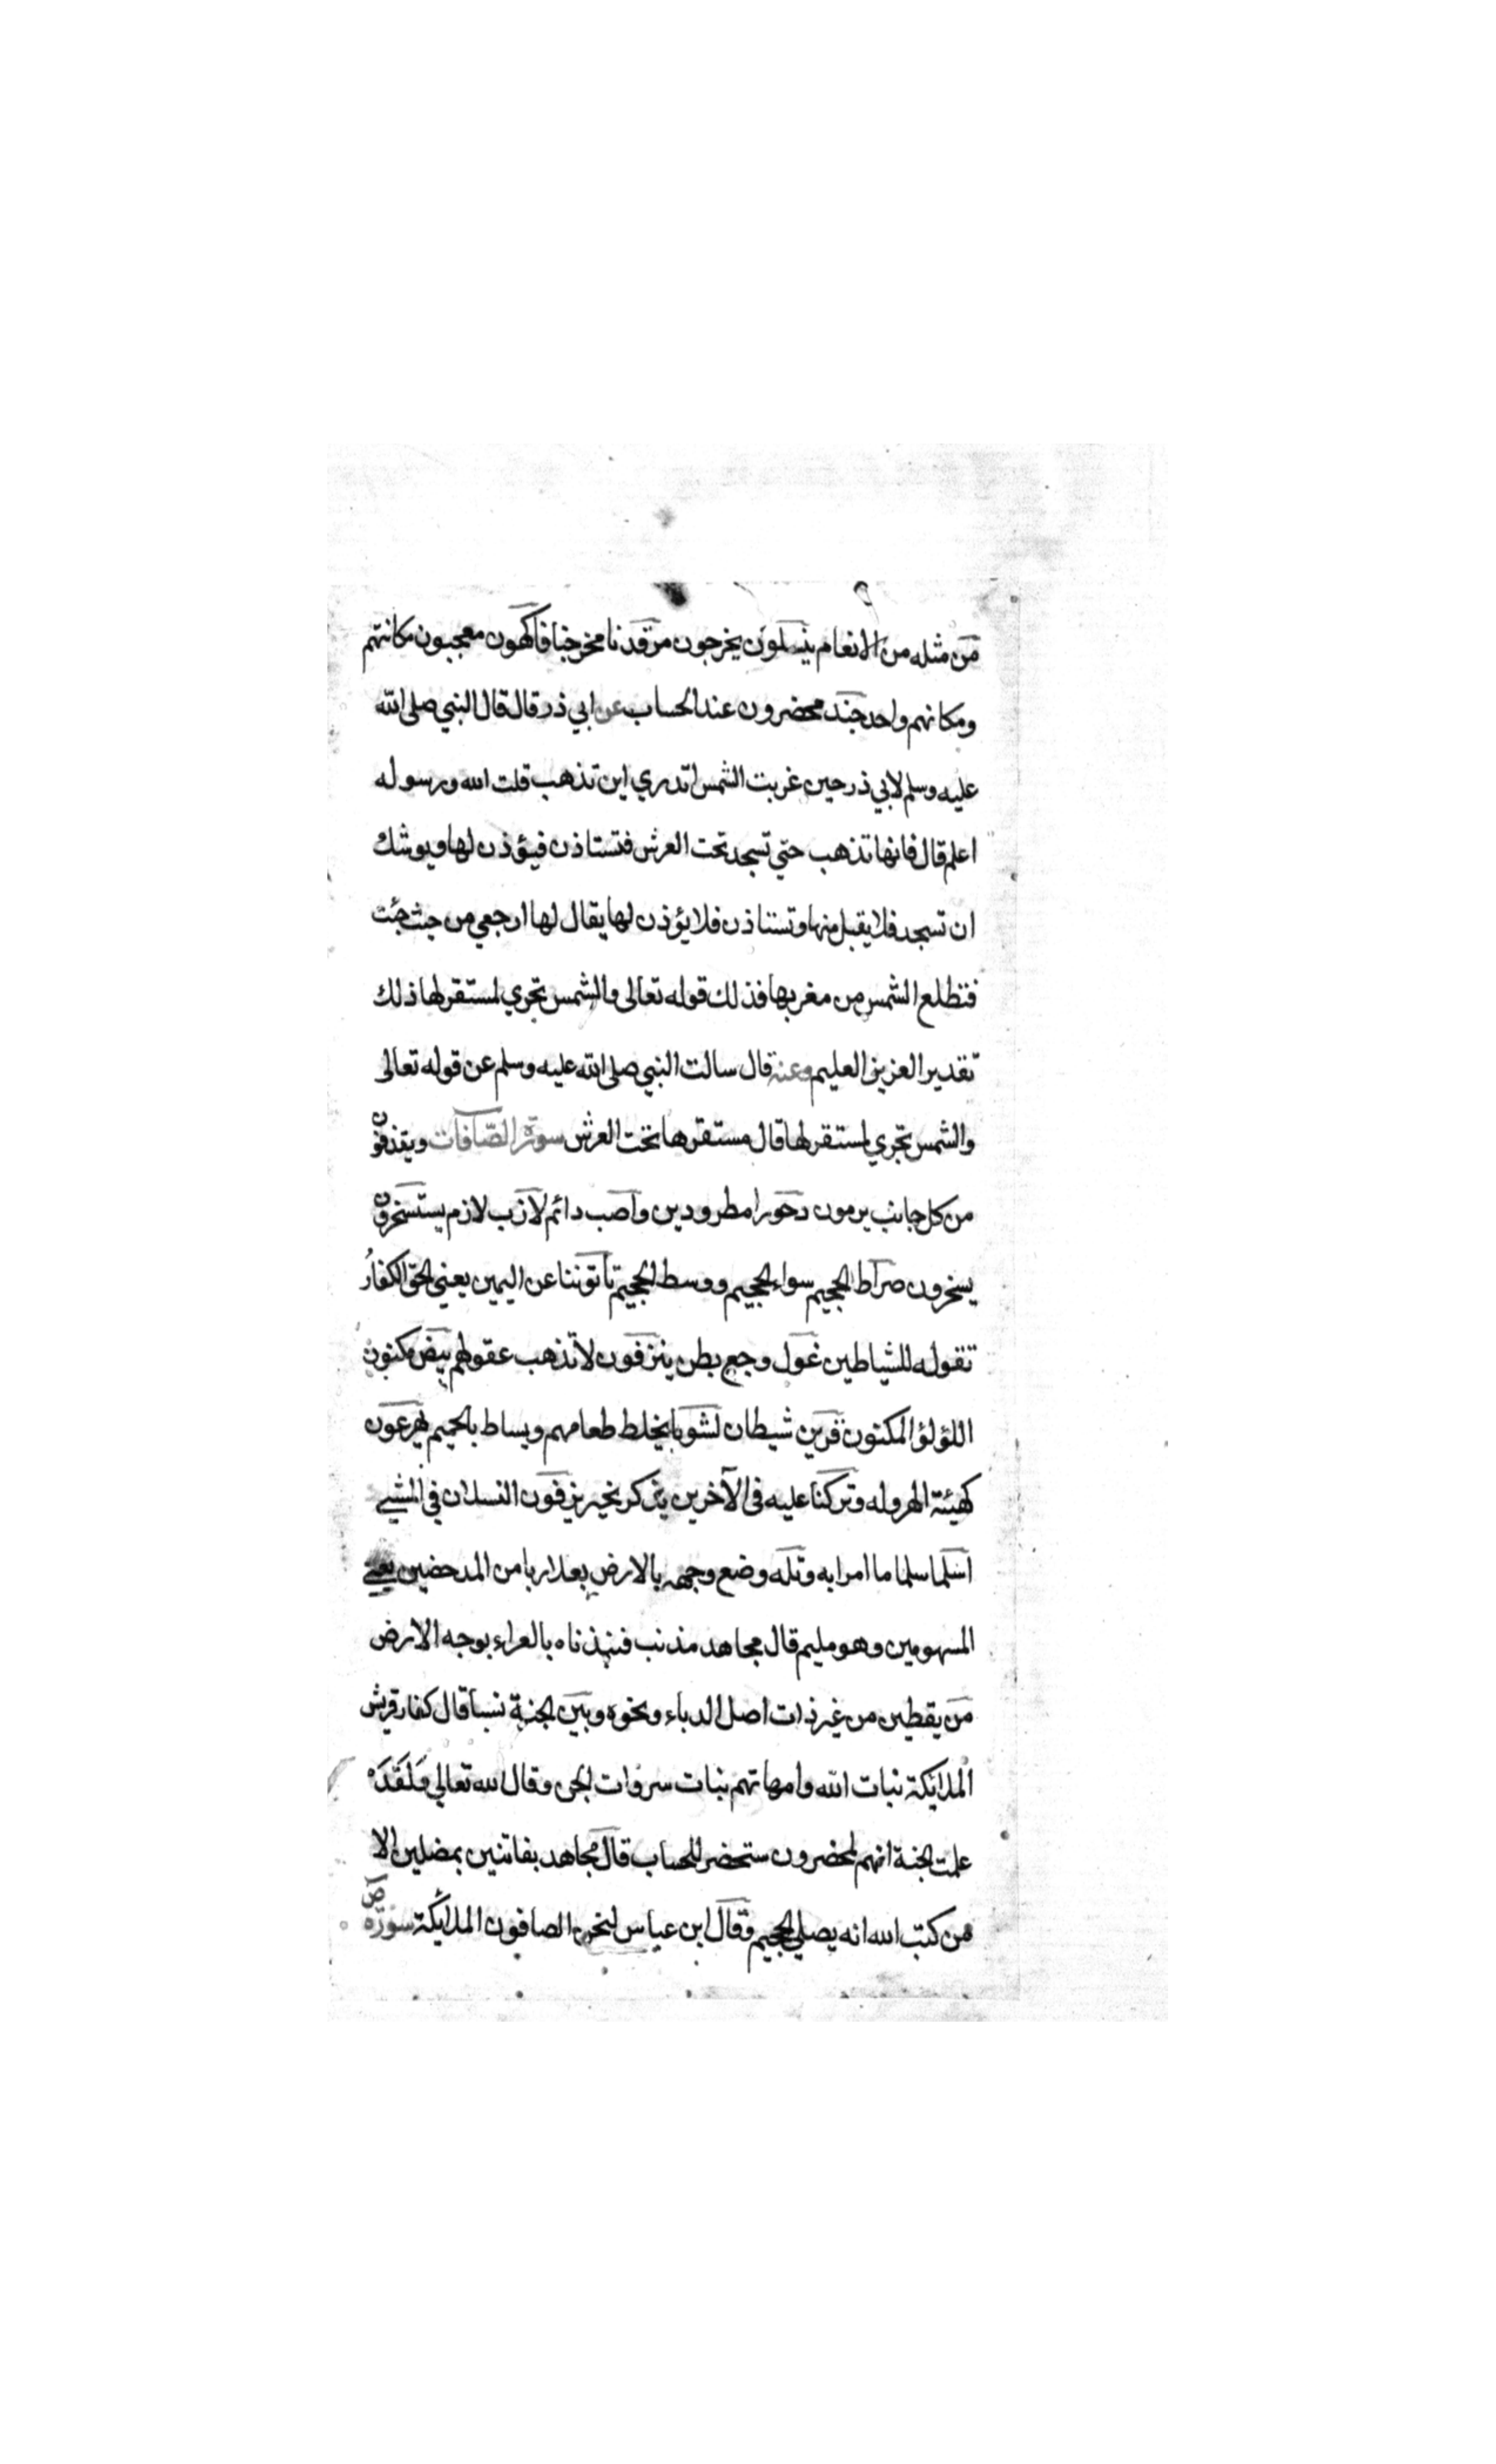 من مثله من الانعام ينسلون يخرجون مرقدنا مخرجنا فاكهون معجبون مكانتهم
ومكانهم واحد جند محضرون عند الحساب عن ابي ذر قال قال النبي صلى الله
عليه وسلم لابي ذر حين غربت الشمس اتدري اين تذهب قلت الله ورسوله
اعلم قال فانها تذهب حتي تسجد تحت العرش فتستاذن فيؤذن لها ويوشك
ان تسجد فلا يقبل منها وتستاذن فلا يؤذن لها يقال لها ارجعي من حيث جئت
فتطلع الشمس من مغربها فذلك قوله تعالى والشمس تجري لمستقر لها ذلك
تقدير العزيز العليم وعنه قال سالت النبي صلى الله عليه وسلم عن قوله تعالى
والشمس تجري لمستقر لها قال مستقرها تحت العرش سورة الصافات ويقذفون
من كل جانب يرمون دحورا مطرودين واصب دائم لازب لازم يستسخرون
يسخرون صراط الجحيم سواء الجحيم ووسط الجحيم تأتوننا عن اليمين يعني الحق الكفار
تقوله للشياطين غول وجع بطن ينزفون لا تذهب عقولهم بيض مكنون
اللؤلؤ المكنون قرين شيطان لشوبا يخلط طعامهم ويساط بالحميم يهرعون
كهيئة الهروله وتركنا عليه فى الآخرين يذكر بخير يزفون النسلان في المشي
اسلما سلما ما امرا به وتله وضع وجهه بالارض بعلا ربا من المدحضين يعني
المسهومين وهو مليم قال مجاهد مذنب فنبذناه بالعراء بوجه الارض
من يقطين من غير ذات اصل الدباء ونحوه وبين الجنة نسبا قال كفار قريش
الملائكة بنات الله وامهاتهم بنات سروات الجن وقال الله تعالي ولقد
علمت الجنة انهم لمحضرون ستحضر للحساب قال مجاهد بفاتنين بمضلين الا
من كتب الله انه يصلي الجحيم وقال ابن عباس لنحن الصافون الملائكة سورة ص